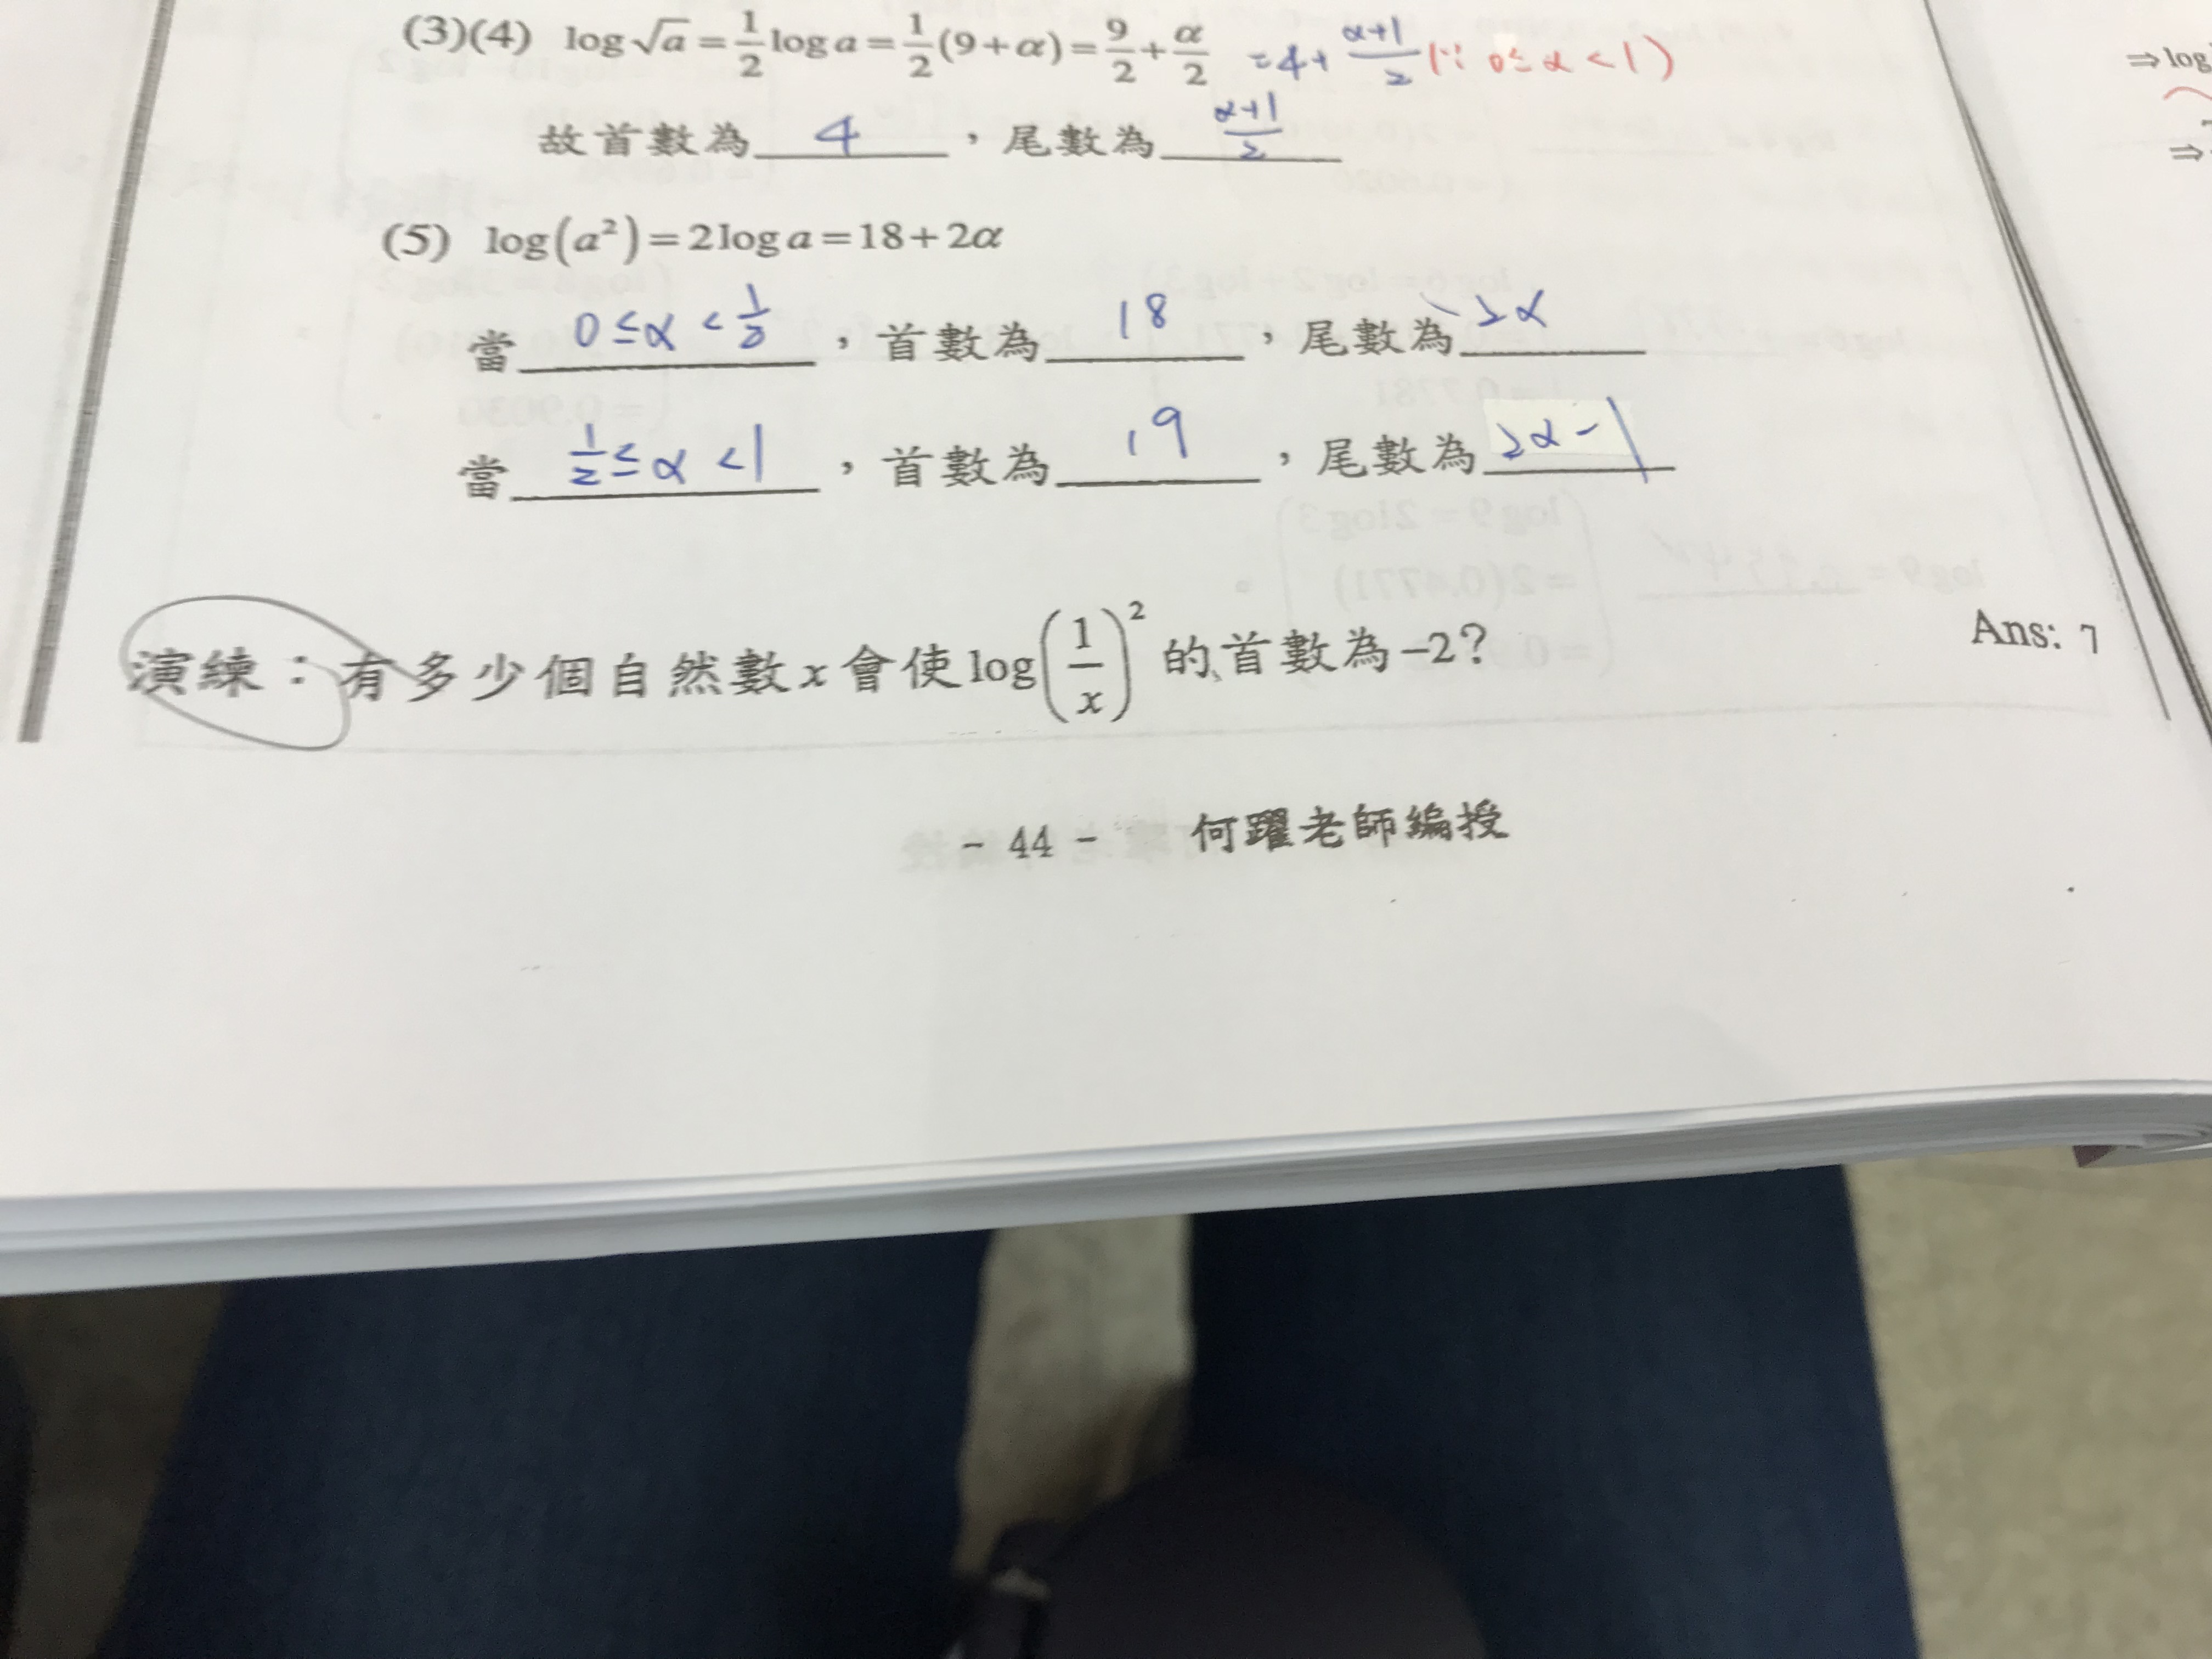 (3)(4) log√a = 1/2 log a = 1/2 (9+α) = 9/2 + α/2 = 4 + (α+1)/2 (∵ 0≤α<1)
故首數為 4 ，尾數為 (α+1)/2
(5) log(a²) = 2log a = 18 + 2α
當 0≤α<1/2 ，首數為 18 ，尾數為 2α
當 1/2≤α<1 ，首數為 19 ，尾數為 2α-1
演練：有多少個自然數x會使log(1/x)²的首數為-2？ Ans: 7
- 44 - 何躍老師編授
⇒log
⇒